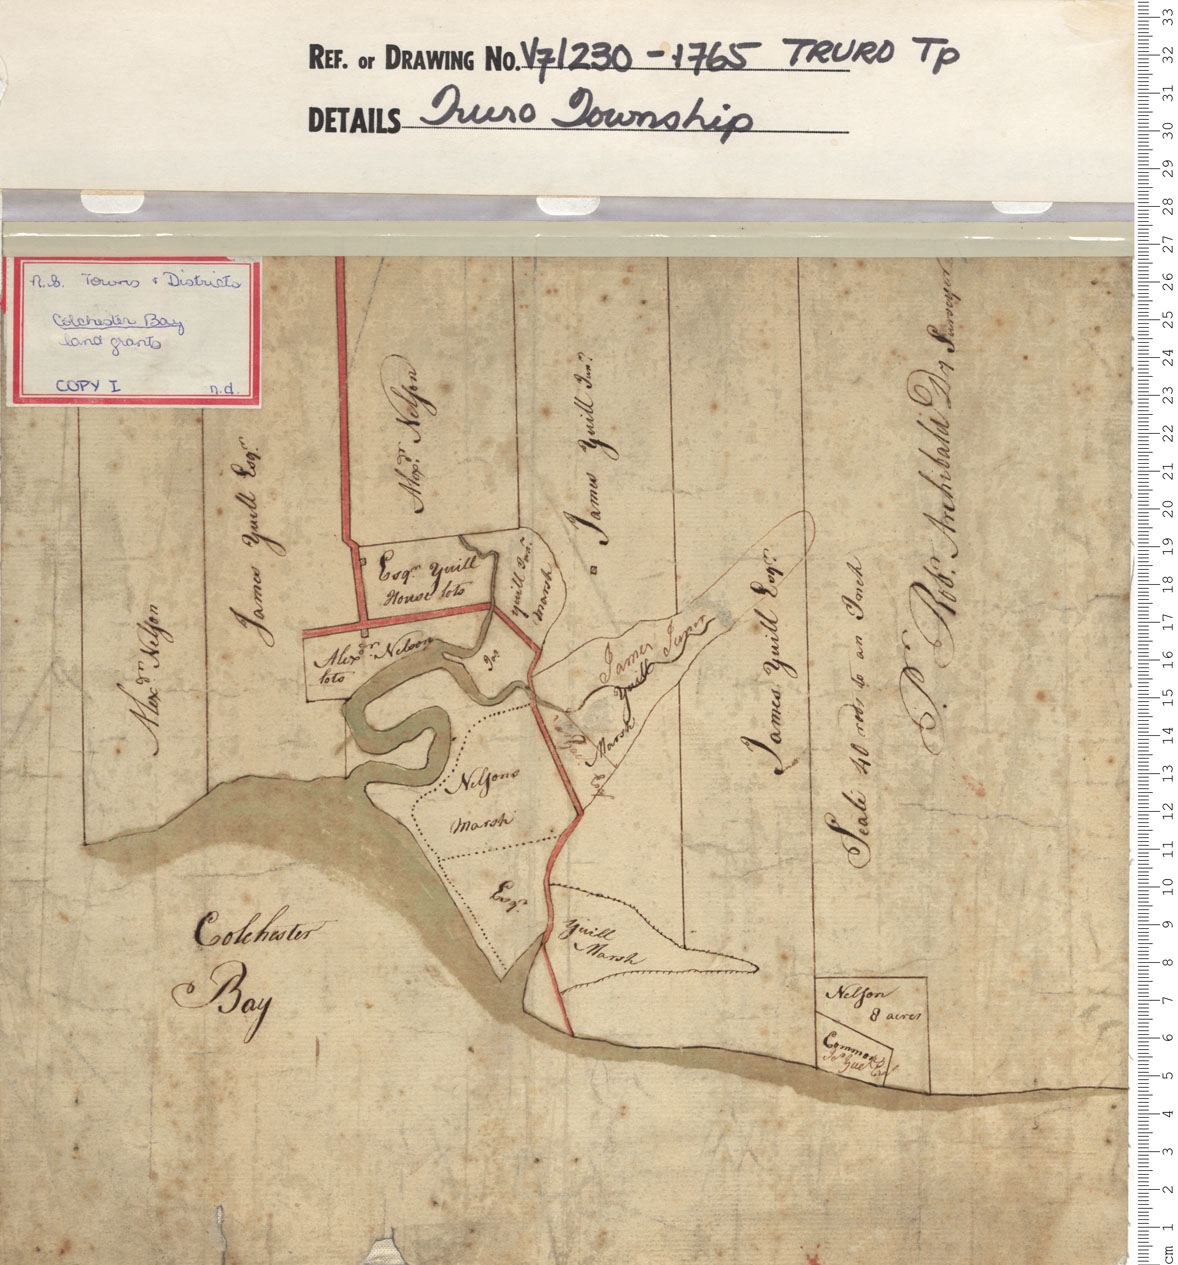 REF. OR DRAWING NO. V7/230 - 1765 TRURO Tp
DETAILS Truro Township
N.S. Towns & Districts
Colchester Bay
land grants
COPY I n.d.
Alexdr. Nelson
James Yuill Esqr.
Alexdr. Nelson
James Yuill Junr.
Esqr. Yuill
House lots
Yuill Junr.
Marsh
Alexdr. Nelson
lots
James
Yuill Junior
Marsh
Nelsons
Marsh
Esqr.
Yuill
Marsh
James Yuill Esqr.
Scale 40 rods to an Inch
Pr. Robt. Archibald Dy Surveyor
Colchester
Bay
Nelson
8 acres
Common
33
32
31
30
29
28
27
26
25
24
23
22
21
20
19
18
17
16
15
14
13
12
11
10
9
8
7
6
5
4
3
2
1
cm